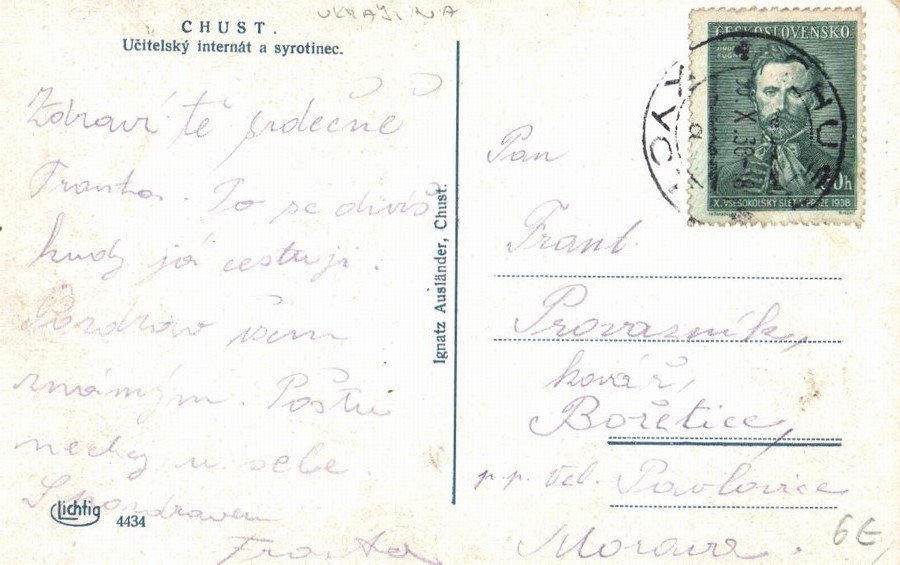 UKRAJINA
CHUST.
Učitelský internát a syrotinec.
Zdraví tě srdečně
Franta. To se divíš
kudy já cestuji.
Pozdrav všem
známým. Poštu
nechej u sebe
S pozdravem
Franta
Lichtig 4434
Ignatz Ausländer, Chust.
ČESKOSLOVENSKO
X. VŠESOKOLSKÝ SLET V PRAZE 1938
Pan
Frant.
Provazník,
kovář,
Bořetice,
p.p. Vel. Pavlovice
Morava.
6E